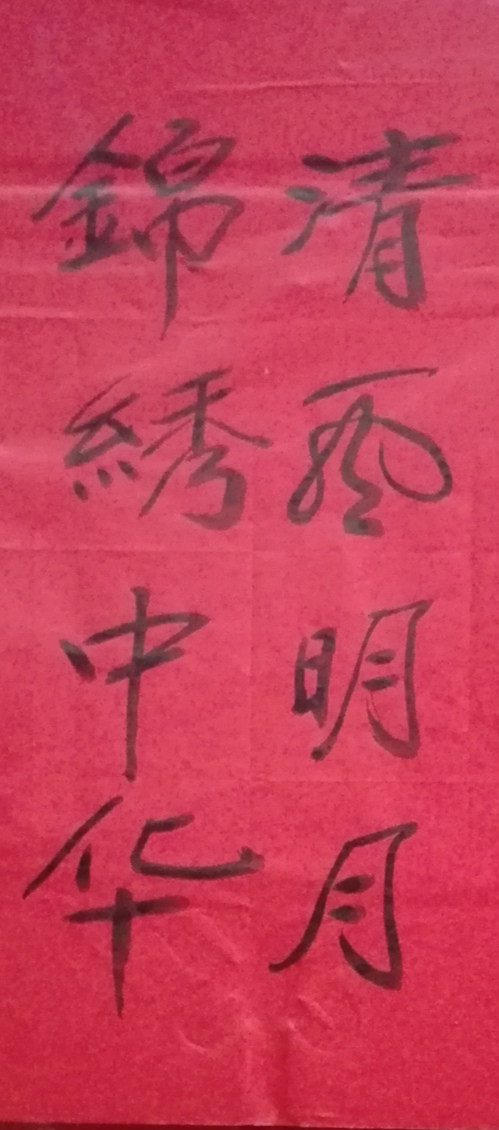 清风明月
錦綉中华